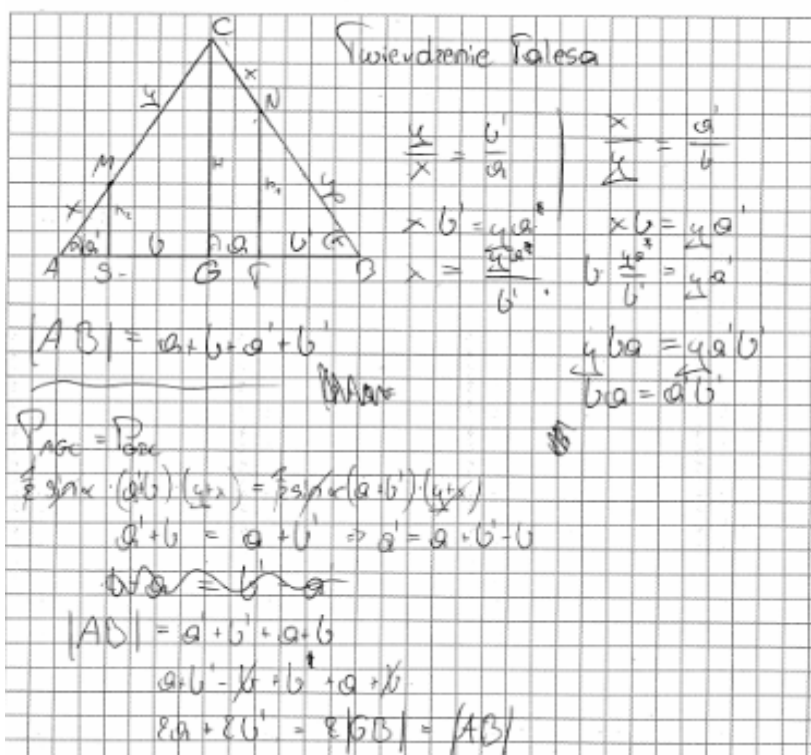 Twierdzenie Talesa
C
x
y
N
M
H
y
x
h₂
h₁
α a' b a b' α
A S G T B
y/x = b'/a
x b' = ya
x = ya/b'
x/y = a'/b
xb = ya'
b ya/b' = ya'
yba = ya'b'
ba = a'b'
|AB| = a+b+a'+b'
P_AGC = P_GBC
½ sin α · (a'+b) · (y+x) = ½ sin α (a+b') · (y+x)
a'+b = a+b' ⇒ a' = a+b'-b
|AB| = a'+b'+a+b
a+b'-b+b'+a+b
2a+2b' = 2|GB| = |AB|